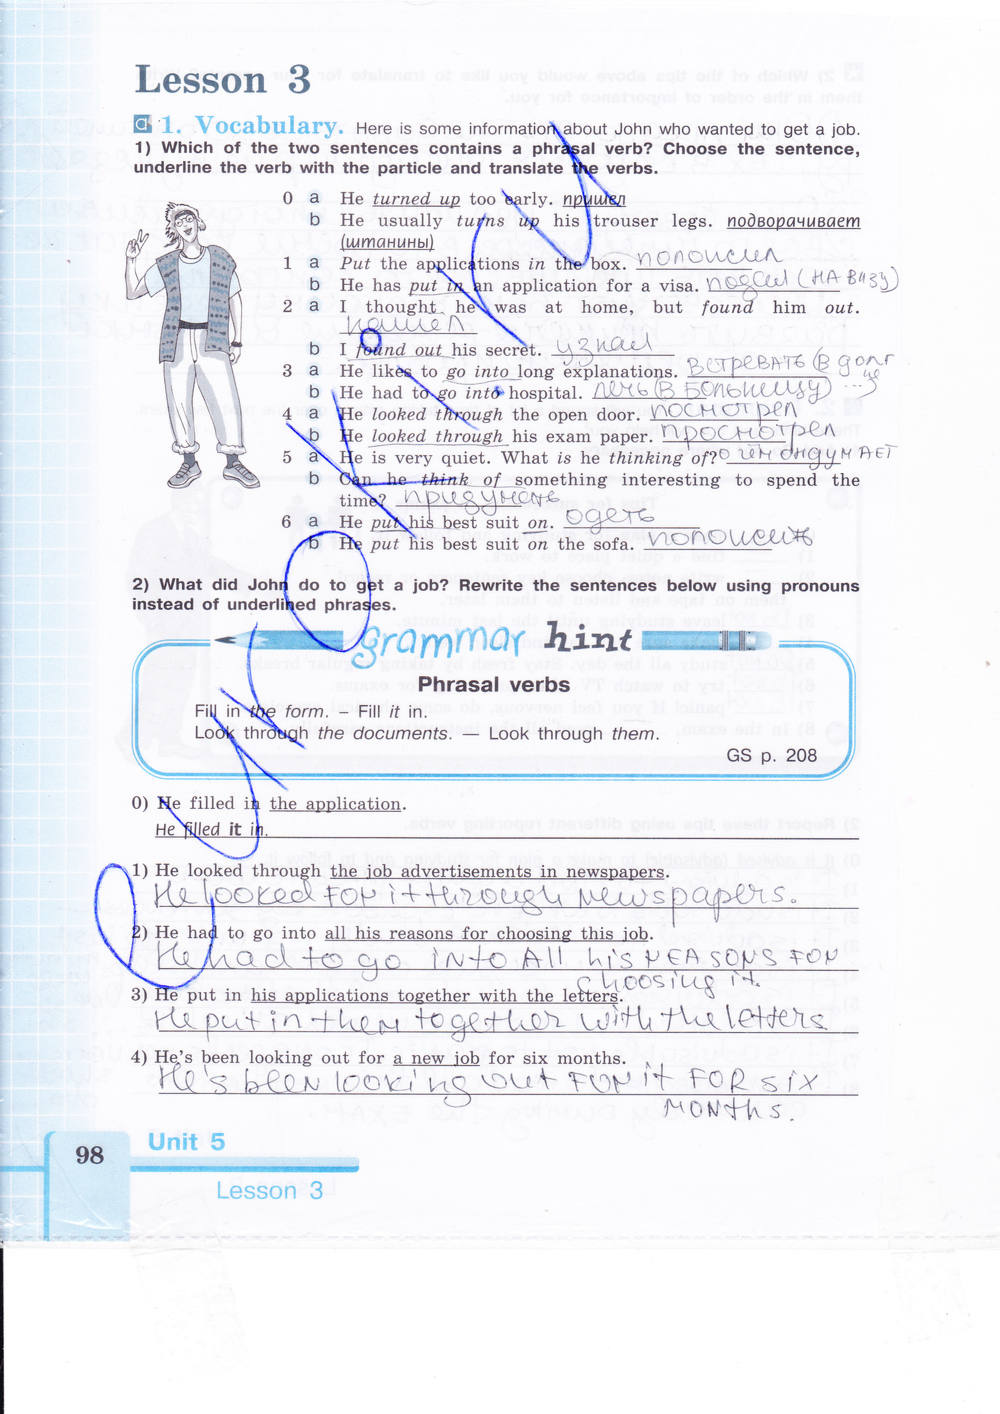 Lesson 3
1. Vocabulary. Here is some information about John who wanted to get a job.
1) Which of the two sentences contains a phrasal verb? Choose the sentence,
underline the verb with the particle and translate the verbs.
0 a He turned up too early. пришел
b He usually turns up his trouser legs. подворачивает
(штанины)
1 a Put the applications in the box. положил
b He has put in an application for a visa. подал (на визу)
2 a I thought he was at home, but found him out.
нашел
b I found out his secret. узнал
3 a He likes to go into long explanations. встревать (в долг
b He had to go into hospital. лечь (в больницу)
4 a He looked through the open door. посмотрел
b He looked through his exam paper. просмотрел
5 a He is very quiet. What is he thinking of? о чём он думает
b Can he think of something interesting to spend the
time? придумать
6 a He put his best suit on. одеть
b He put his best suit on the sofa. положить
2) What did John do to get a job? Rewrite the sentences below using pronouns
instead of underlined phrases.
grammar hint
Phrasal verbs
Fill in the form. – Fill it in.
Look through the documents. — Look through them.
GS p. 208
0) He filled in the application.
He filled it in.
1) He looked through the job advertisements in newspapers.
He looked for it through newspapers.
2) He had to go into all his reasons for choosing this job.
He had to go into all his reasons for
choosing it.
3) He put in his applications together with the letters.
He put in them together with the letters
4) He's been looking out for a new job for six months.
He's been looking out for it for six
months.
98
Unit 5
Lesson 3